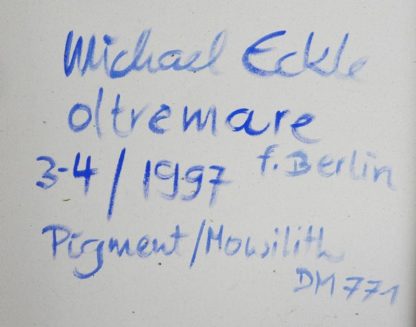 Michael Eckle
oltremare
3-4/1997 f. Berlin
Pigment/Mowilith
DM 771